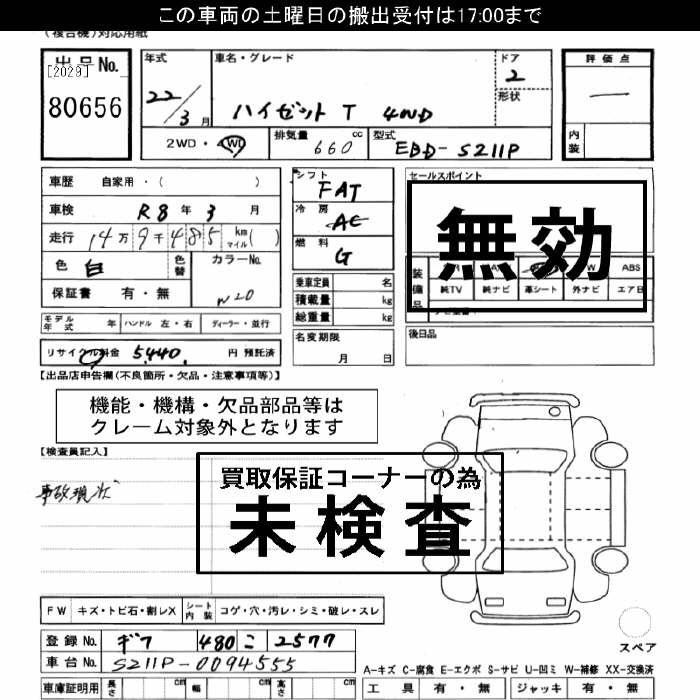 この車両の土曜日の搬出受付は17:00まで
(複合機)対応用紙
出品No.
[2029]
80656
年式 22/3月
車名・グレード
ハイゼット T 4WD
ドア 2
形状
評価点
内装
2WD・4WD
排気量 660 cc
型式 EBD-S211P
車歴 自家用・( )
車検 R8年3月
走行 14万9千485 km マイル( )
色 白
色替
カラーNo.
W20
保証書 有・無
シフト FAT
冷房 AC
燃料 G
乗車定員 名
積載量 kg
総重量 kg
セールスポイント
無効
装備品
ABS
純TV 純ナビ 革シート 外ナビ エアB
モデル年式 年 ハンドル 左・右 ディーラー・並行
名変期限
月 日
後日品
リサイクル料金 5,440. 円 預託済
【出品店申告欄(不良箇所・欠品・注意事項等)】
機能・機構・欠品部品等は
クレーム対象外となります
【検査員記入】
買取保証コーナーの為
未検査
事故現状
FW キズ・トビ石・割レX シート内装 コゲ・穴・汚レ・シミ・破レ・スレ
登録No. ギフ 480 こ 2577
車台No. S211P-0094555
スペア
A-キズ C-腐食 E-エクボ S-サビ U-凹ミ W-補修 XX-交換済
車庫証明用 長さ cm 幅 cm 高さ cm
工具 有・無 ジャッキ 有・無